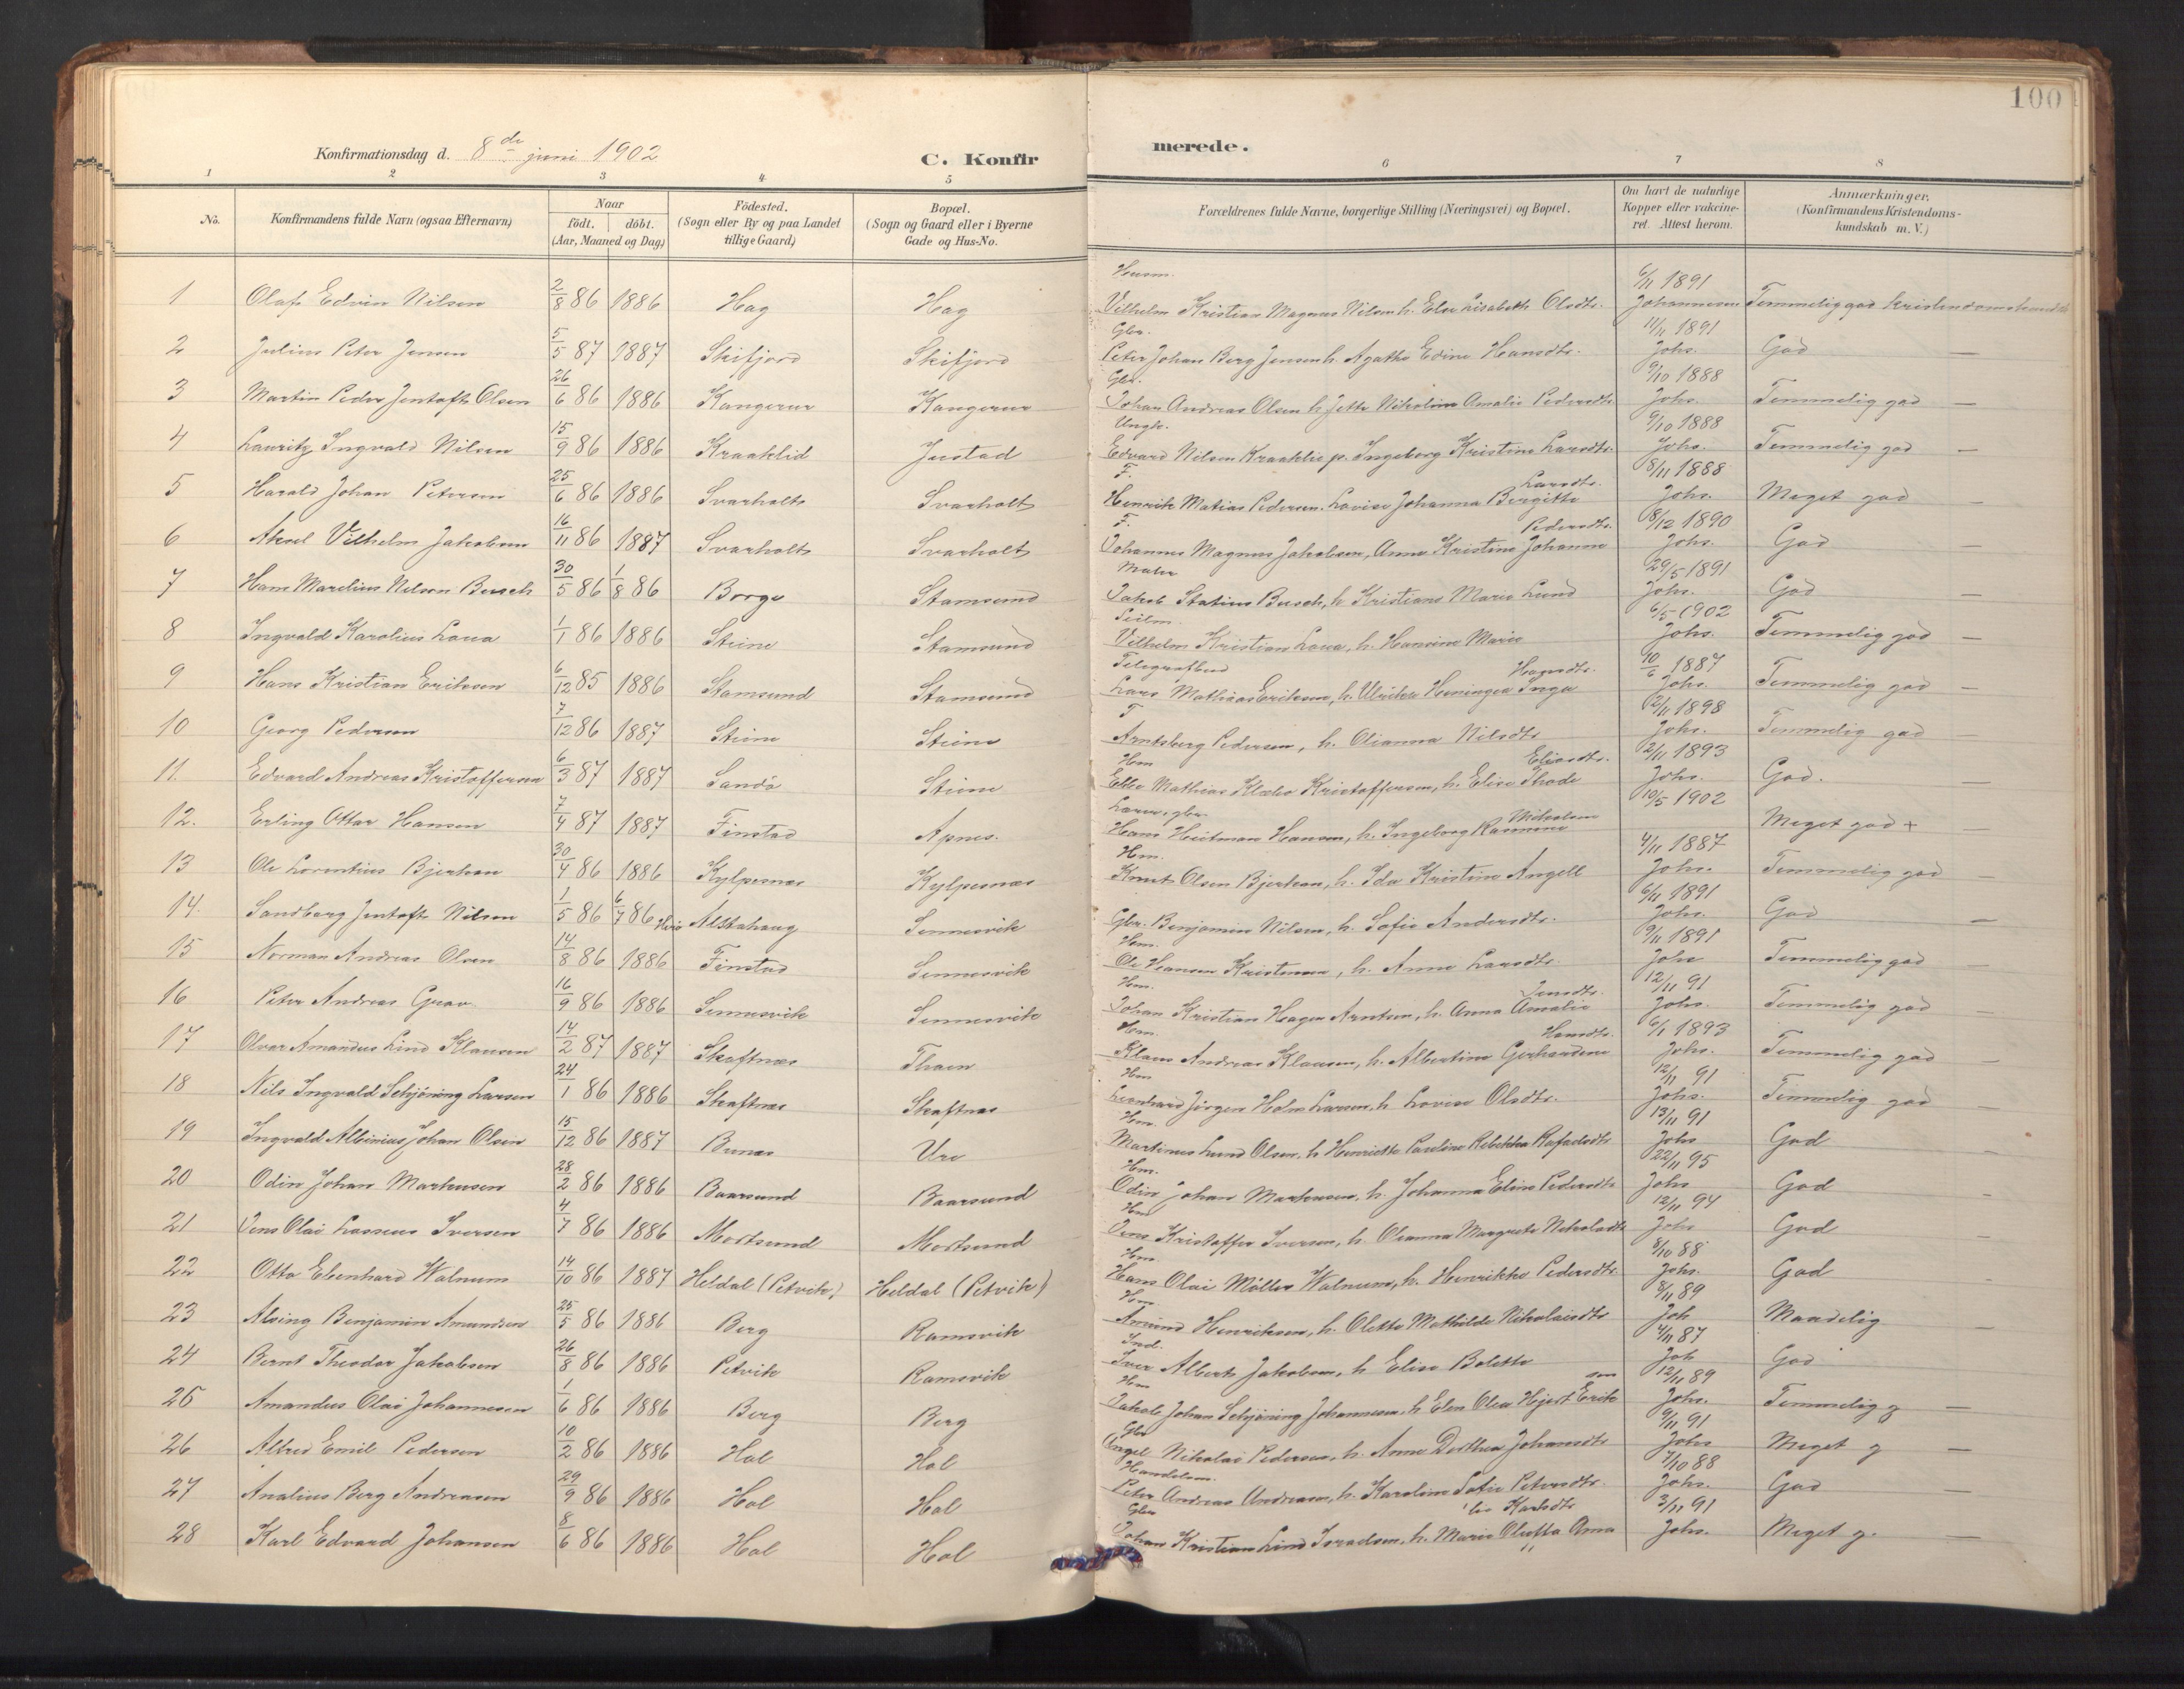 100
Konfirmationsdag d. 8de juni 1902
C. Konfirmerede.
1 2 3 4 5 6 7 8
No. | Konfirmandens fulde Navn (ogsaa Efternavn) | Naar födt. döbt. (Aar, Maaned og Dag) | Födested. (Sogn eller By og paa Landet tillige Gaard) | Bopæl. (Sogn og Gaard eller i Byerne Gade og Hus-No. | Forældrenes fulde Navne, borgerlige Stilling (Næringsvei) og Bopæl. | Om havt de naturlige Kopper eller vakcineret. Attest herom. | Anmærkninger. (Konfirmandens Kristendomskundskab m. V.)
1 Olaf Edvin Nilsen 2/8 86 1886 Hag Hag Husm. Vilhelm Kristian Magnus Nilsen h. Else Lisabeth Olsdtr. 6/11 1891 Johannesen Temmelig god kristendomskundsk
2 Julius Peter Jensen 5/5 87 1887 Skifjord Skifjord Gbr. Peter Johan Berg Jensen h. Agathe Edine Hansdtr. 11/11 1891 Johs. God —
3 Martin Peder Jentoft Olsen 26/6 86 1886 Kangerur Kangerur Gbr. Johan Andreas Olsen h. Jette Nikoline Amalie Pedersdtr 9/10 1888 Johs. Temmelig god —
4 Lauritz Ingvald Nilsen 15/9 86 1886 Kraaklid Justad Ungk. Edvard Nilsen Kraaklie p. Ingeborg Kristine Larsdtr. 9/10 1888 Johs. Temmelig god —
5 Harald Johan Petersen 25/6 86 1886 Svarholt Svarholt F. Henrik Matias Pedersen. Lovise Johanna Bergitte Larsdtr. 8/11 1888 Johs. Meget god —
6 Aksel Vilhelm Jakobsen 16/11 86 1887 Svarholt Svarholt F. Johannes Magnus Jakobsen, Anne Kristine Johanne Pedersdtr. 8/12 1890 Johs. God —
7 Hans Marelius Nilsen Busch 30/5 86 1/8 86 Borge Stamsund Maler Jakob Statius Busch, h. Kristiane Marie Lund 29/5 1891 Johs. God —
8 Ingvald Karolius Loua 1/1 86 1886 Steine Stamsund Vilhelm Kristian Loua, h. Hansine Marie 6/5 1902 Johs. Temmelig god —
9 Hans Kristian Eriksen 6/12 85 1886 Stamsund Stamsund Telegrafbud Lars Mathias Eriksen, h. Ulrikke Heningea Inga Hansdtr. 10/6 1887 Johs. Temmelig god —
10 Georg Pedersen 7/12 86 1887 Steine Steine F Arntsberg Pedersen, h. Olianna Nilsdtr 2/11 1898 Johs. Temmelig god —
11. Edvard Andreas Kristoffersen 6/3 87 1887 Sandö Steine Hm Mathias Klæbo Kristoffersen, h. Elise Thode Eliasdtr. 2/11 1893 Johs. God. —
12. Erling Ottar Hansen 7/4 87 1887 Finstad Apnes. Lærer, gbr. Hans Heitman Hansen, h. Ingeborg Rasmine Nikolsen 10/5 1902 Meget god + —
13 Ole Lorentius Bjerkan 30/4 86 1886 Kylpesnes Kylpesnes Hm. Knut Olsen Bjerkan, h. Ida Kristine Angell 4/11 1887 Johs. Temmelig god —
14. Sandberg Jentoft Nilsen 1/5 86 6/7 86 Herö Alstahaug Sennesvik Gbr. Benjamin Nilsen, h. Sofie Andersdtr. 6/11 1891 Johs. God —
15 Norman Andreas Olsen 14/8 86 1886 Finstad Sennesvik Hm. Ole Hansen Kristensen, h. Anne Larsdtr. 9/11 1891 Johs Temmelig god
16 Peter Andreas Grav 16/9 86 1886 Sennesvik Sennesvik Hm. Johan Kristian Hagen Arntsen, h. Anna Amalie Jensdtr. 12/11 91 Johs. Temmelig god —
17 Olvar Amandus Lind Klausen 14/2 87 1887 Skaftnes Thaen Hm. Klaus Andreas Klausen, h. Albertine Gerhardine Hansdtr. 6/1 1893 Johs. Temmelig god —
18 Nils Ingvald Schjöning Larsen 24/1 86 1886 Skaftnes Skaftnes Hm Leonhard Jörgen Holm Larsen, h. Lovise Olsdtr. 12/11 91 Johs. Temmelig god —
19 Ingvald Albinius Johan Olsen 15/12 86 1887 Bunes Ure Hm. Martinus Lund Olsen, h. Henriette Pauline Rebekka Rafaelsdtr 13/11 91 Johs God —
20 Odin Johan Markusen 28/2 86 1886 Baarsund Baarsund Hm. Odin Johan Markusen, h. Johanna Elise Pedersdtr 22/11 95 Johs God —
21 Jens Olai Lasseus Iversen 4/7 86 1886 Mortsund Mortsund Hm Jens Kristoffer Iversen, h. Olianna Margrete Nikolsdtr 12/11 94 Johs God —
22 Otto Ebenhard Walnum 14/10 86 1887 Heldal (Petvik) Heldal (Petvik) Hm Hans Olai Möller Walnum, h. Henrikke Pedersdtr. 8/10 88 Johs. God —
23 Alsing Benjamin Amundsen 25/5 86 1886 Berg Ramsvik Hm Amund Henriksen, h. Olette Mathilde Nikolaisdtr 8/11 89 Joh Maadelig —
24 Bernt Theodor Jakobsen 26/8 86 1886 Petvik Ramsvik Ind. Iver Albert Jakobsen, h Elise Bolette 4/11 87 Joh God
25 Amandus Olai Johannesen 1/6 86 1886 Berg Berg Hm Jakob Johan Schjöning Johannesen, h Elen Olea Hjert Eriksen 12/11 89 Johs. Temmelig g —
26 Alfred Emil Pedersen 10/2 86 1886 Hol Hol Gbr Engel Nikolai Pedersen, h. Anne Dorthea Johansdtr 9/11 91 Johs Meget g —
27 Analius Berg Andreasen 29/9 86 1886 Hol Hol Handelsm. Peter Andreas Andreasen, h. Karoline Sofie Petersdtr. 7/10 88 Johs. God —
28 Karl Edvard Johansen 8/6 86 1886 Hol Hol Gbr Johan Kristian Lind Israelsen, h. Marie Oluffa Anna Karlsdtr 3/11 91 Johs. Meget g. —